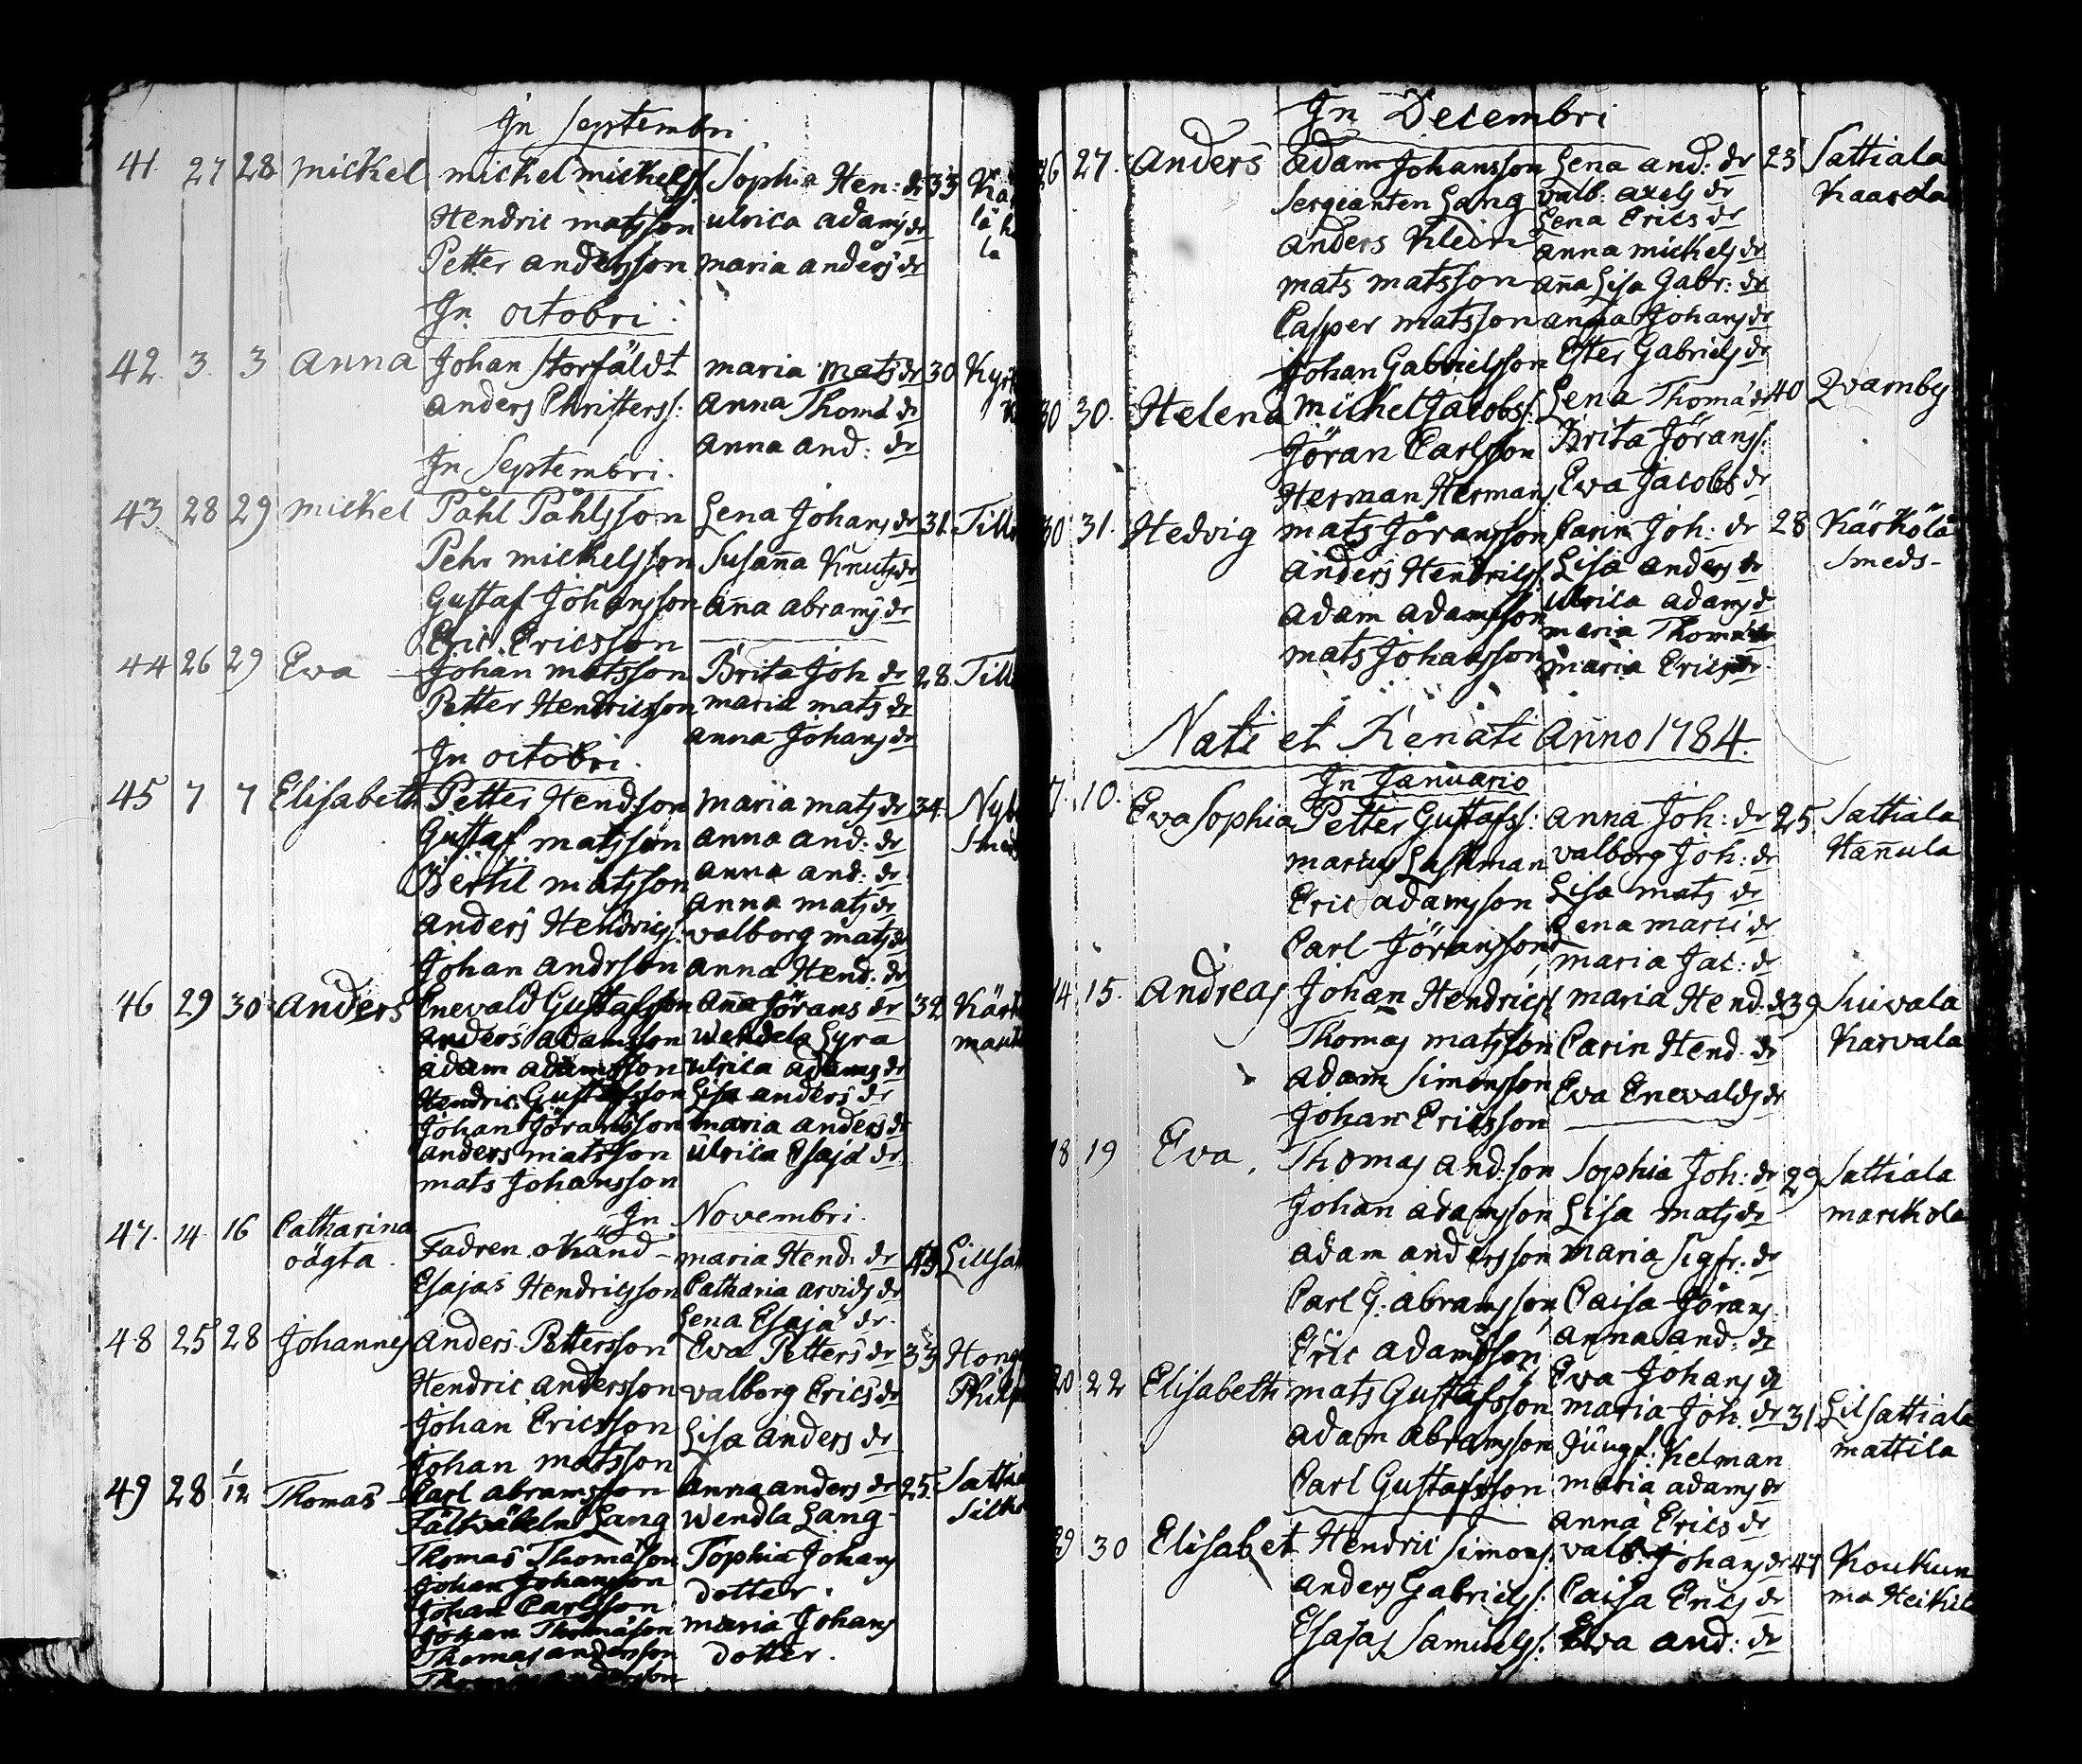 In Septembri
41. 27 28 Mickel Mickel Mickelss. Sophia Hen: dr 33
Hendric Matsson Ulrica Adams dr
Petter Andersson Maria Anders dr
In Octobri
42. 3. 3 Anna Johan Storfäldt Maria Mats dr 30
Anders Christerss: Anna Thomæ dr
Anna And: dr
In Septembri.
43 28 29 Mickel Påhl Påhlsson Lena Johans dr 31.
Pehr Mickelsson Susanna Knuts dr
Gustaf Johansson Anna Abrams dr
Eric Ericsson
44 26 29 Eva Johan Matsson Brita Joh dr 28
Petter Hendricsson Maria Mats dr
Anna Johans dr
In Octobri.
45 7 7 Elisabeth Petter Hendson Maria Mats dr 34.
Gustaf Matsson Anna And: dr
Bertil Matsson Anna And: dr
Anna Mats dr
Anders Hendricss: Valborg Mats dr
Johan Andrson Anna Hend: dr
46 29 30 Anders Enevald Gustafsson Aña Jörans dr 32
Anders Adamsson Wendela Lyra
Adam Adamsson Ulrica Adams dr
Hendric Gustafsson Lisa Anders dr
Johan Joransson Maria Anders dr
Anders Matsson Ulrica Esajæ dr
Mats Johansson
In Novembri.
47. 14. 16 Catharina
oägta. Fadren okänd - Maria Hend: dr
Esajas Hendricsson Catharia Arvids dr
Lena Esajæ dr.
48 25 28 Johannes Anders Pettersson Eva Petters dr 33
Hendric Andersson Valborg Erics dr
Johan Ericsson Lisa Anders dr
Johan Matsson
49 28 1/12 Thomas Carl Abramsson Anna Anders dr 25.
Lang Wendla Lang
Thomas Thomæson Sophia Johans
Johan Johansson dotter.
Johan Carlsson
Johan Thomæson Maria Johans
Thomas Andersson dotter.
In Decembri
27. Anders Adam Johansson Lena And: dr 23 Sattiala
Sergeanten Lang Valb. Axels dr Kaarela
Lena Erics dr
Anders Kleen Anna Mickels dr
Mats Matsson Aña Lisa Gabr: dr
Casper Matsson Anna Johans dr
Johan Gabrielsson Ester Gabriels dr
30 30. Helena Mickel Jacobs: Lena Thomæ dr 40 Qvarnby
Jöran Carlsson Brita Jörans:
Herman Hermans Eva Jacobs dr
30 31. Hedvig Mats Joransson Carin Joh: dr 28 Kärkölä
Anders Hendricss. Lisa Anders dr Smeds-
Adam Adamsson Ulrica Adams dr
Maria Thomæ dr
Mats Johansson Maria Erics dr
Nati et Renati Anno 1784.
In Januario
7. 10. Eva Sophia Petter Gustafss: Anna Joh: dr 25. Sattiala
Marcus Lashman Valborg Joh: dr Hañula
Eric Adamsson Lisa Mats dr
Lena Marci dr
Carl Joransson Maria Jac: dr
14 15. Andreas Johan Hendricss Maria Hend. dr 39 Suivala
Thomas Matsson Carin Hend. dr Karvala
Adam Simonsson Eva Enevalds dr
Johan Ericsson
18 19 Eva. Thomas And:son Sophia Joh: dr 29 Sattiala
Johan Adamsson Lisa Mats dr Marckola
Adam Andersson Maria Sigfr: dr
Carl G: Abramsson Caisa Jörans
Eric Adamsson Anna And: dr
Eva Johans dr
20 22 Elisabeth Mats Gustafsson Maria Joh. dr 31 Lilsattiala
Adam Abramsson Jungf: Kelman Mattila
Carl Gustafsson Maria Adams dr
Anna Erics dr
29 30 Elisabet Hendric Simons: Valb. Johans dr 47 Koukun
Anders Gabrielss: Caisa Erics dr ma Heikil
Esajas Samuelss: Eva And: dr